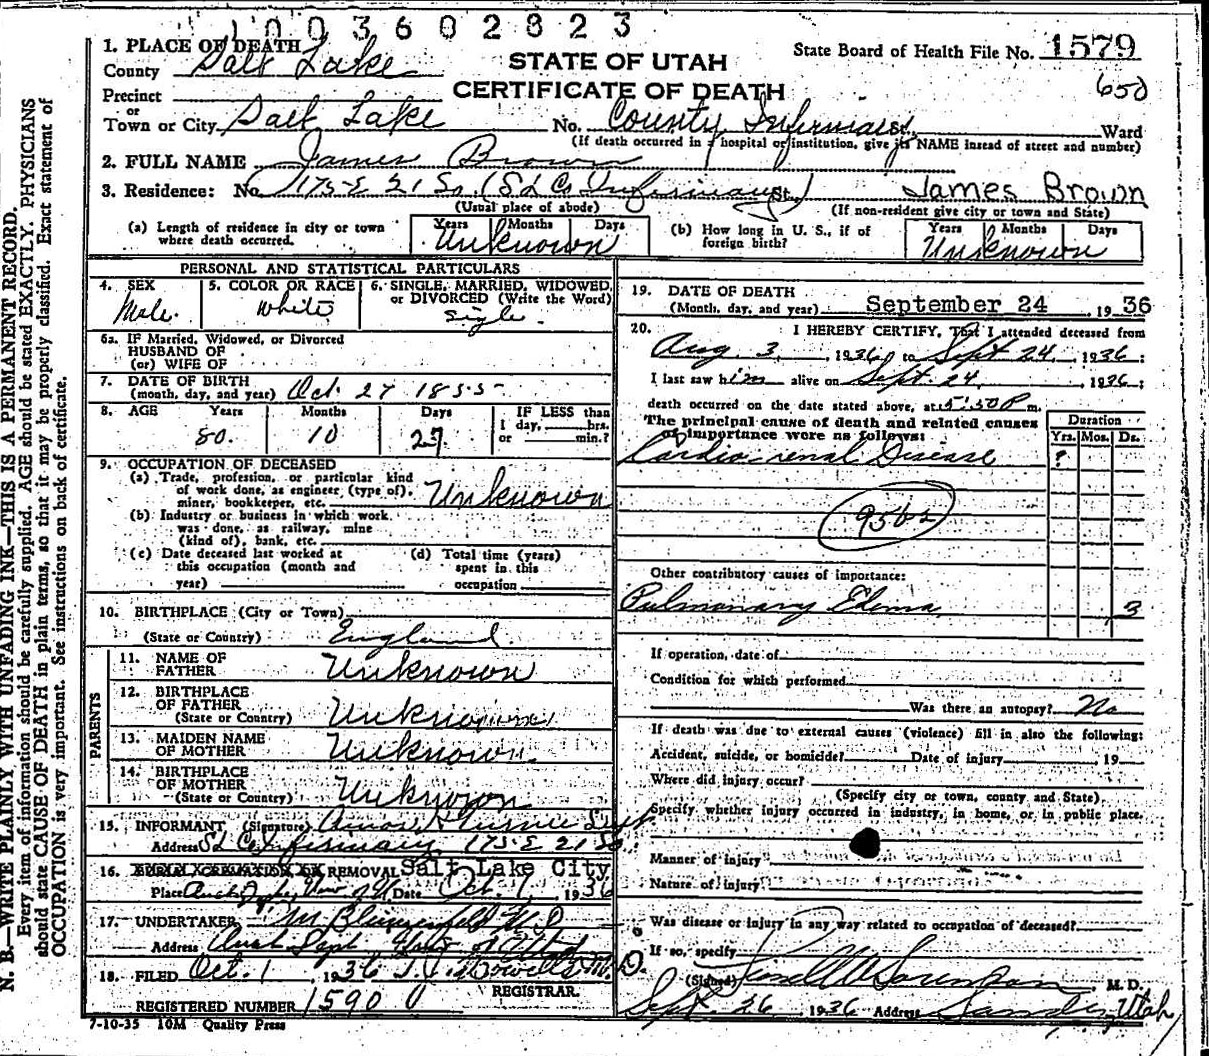 1003602823
1. PLACE OF DEATH
County Salt Lake
STATE OF UTAH
CERTIFICATE OF DEATH
State Board of Health File No. 1579
650
Precinct
or
Town or City Salt Lake No. County Infirmary, Ward
(If death occurred in a hospital or institution, give its NAME instead of street and number)
2. FULL NAME James Brown
3. Residence: No. 175 E 21 So. (S L Co Infirmary) St. James Brown
(Usual place of abode) (If non-resident give city or town and State)
(a) Length of residence in city or town where death occurred. Years Months Days Unknown
(b) How long in U. S., if of foreign birth? Years Months Days Unknown
PERSONAL AND STATISTICAL PARTICULARS
4. SEX Male.
5. COLOR OR RACE White
6. SINGLE, MARRIED, WIDOWED, or DIVORCED (Write the Word) Single.
6a. IF Married, Widowed, or Divorced
HUSBAND OF
(or) WIFE OF
7. DATE OF BIRTH
(month, day, and year) Oct. 27 1855
8. AGE Years Months Days IF LESS than
80. 10 27. 1 day, hrs.
or min.?
9. OCCUPATION OF DECEASED
(a) Trade, profession, or particular kind
of work done, as engineer, (type of),
miner, bookkeeper, etc. Unknown
(b) Industry or business in which work
was done, as railway, mine
(kind of), bank, etc.
(c) Date deceased last worked at
this occupation (month and
year)
(d) Total time (years)
spent in this
occupation
10. BIRTHPLACE (City or Town)
(State or Country) England.
PARENTS
11. NAME OF
FATHER Unknown
12. BIRTHPLACE
OF FATHER
(State or Country) Unknown
13. MAIDEN NAME
OF MOTHER Unknown.
14. BIRTHPLACE
OF MOTHER
(State or Country) Unknown
15. INFORMANT (Signature) Supt
Address S L Co Infirmary 175 E 21 So.
16. BURIAL, CREMATION OR REMOVAL Salt Lake City
Place Univ of U Date Oct. 1 1936
17. UNDERTAKER M Blumenfeld M D
Address Univ of Utah
18. FILED Oct. 1 1936
REGISTRAR.
REGISTERED NUMBER 1590
7-10-35 10M Quality Press
19. DATE OF DEATH
(Month, day, and year) September 24, 1936
20. I HEREBY CERTIFY, That I attended deceased from
Aug. 3, 1936, to Sept 24, 1936;
I last saw him alive on Sept. 24, 1936;
death occurred on the date stated above, at 5:50 P m.
The principal cause of death and related causes
of importance were as follows:
Duration
Yrs. Mos. Ds.
Cardio-renal Disease ?
95b2
Other contributory causes of importance:
Pulmonary Edema 3
If operation, date of
Condition for which performed
Was there an autopsy? No
If death was due to external causes (violence) fill in also the following:
Accident, suicide, or homicide? Date of injury 19
Where did injury occur?
(Specify city or town, county and State)
Specify whether injury occurred in industry, in home, or in public place.
Manner of injury
Nature of injury
Was disease or injury in any way related to occupation of deceased?
If so, specify
(Signed) Sorenson, M. D.
Sept. 26 1936 Address Sandy, Utah
N. B.—WRITE PLAINLY WITH UNFADING INK—THIS IS A PERMANENT RECORD.
Every item of information should be carefully supplied. AGE should be stated EXACTLY. PHYSICIANS
should state CAUSE OF DEATH in plain terms, so that it may be properly classified. Exact statement of
OCCUPATION is very important. See instructions on back of certificate.